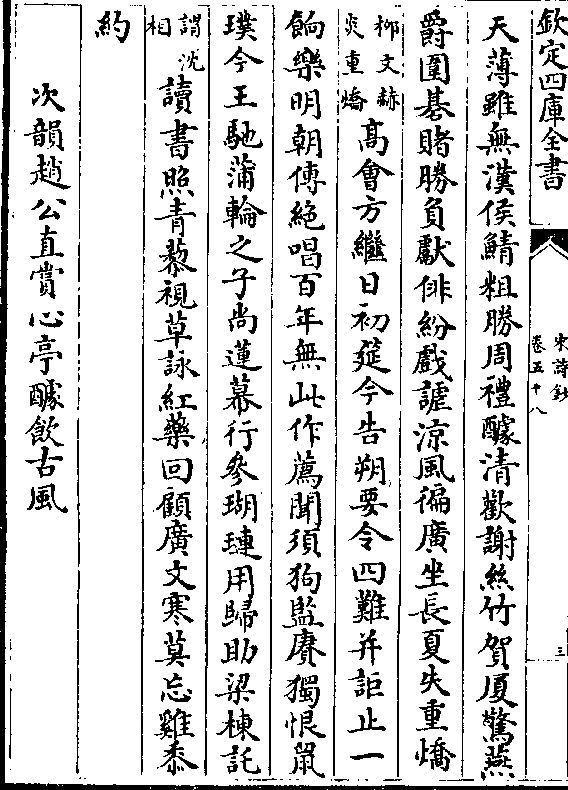 欽定四庫全書
宋詩鈔
卷五十八
三
天薄雖無漢侯鯖粗勝周禮醵清歡謝絲竹賀厦驚燕
爵圍棊賭勝負獻俳紛戲謔涼風徧廣坐長夏失重熇
柳文赫
炎重熇
高會方繼日初筵今告朔要令四難并詎止一
餉樂明朝傳絶唱百年無此作薦聞須狗監賡獨恨鼠
璞今王馳蒲輪之子尚蓮幕行參瑚璉用歸助梁棟託
謂沈
相
讀書照青藜視草詠紅藥回顧廣文寒莫忘雞黍
約
次韻趙公直賞心亭醵飲古風